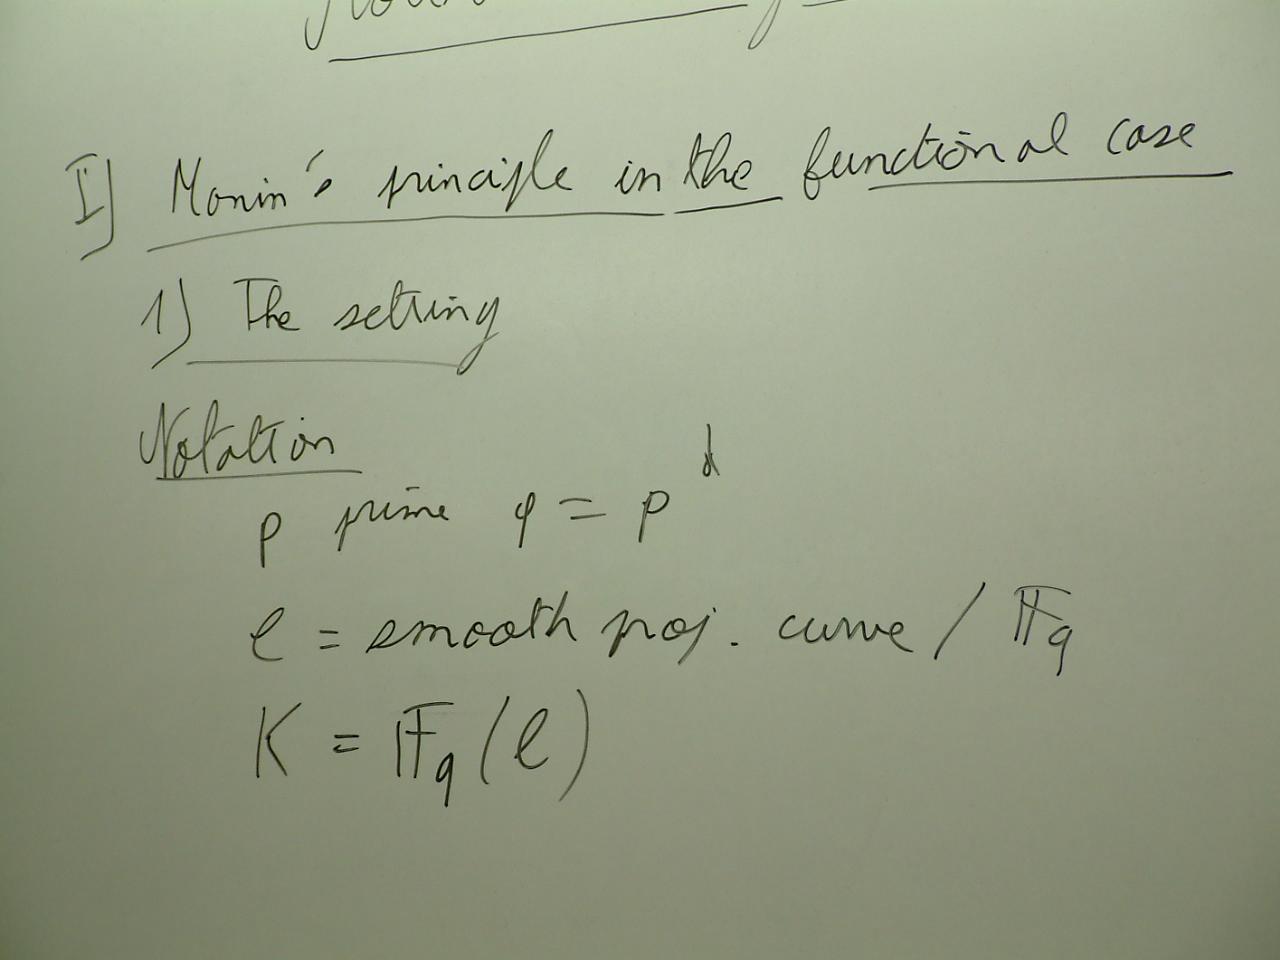 I) Manin's principle in the functional case
1) The setting
Notation
p prime q = p^d
𝒞 = smooth proj. curve / 𝔽_q
K = 𝔽_q(𝒞)